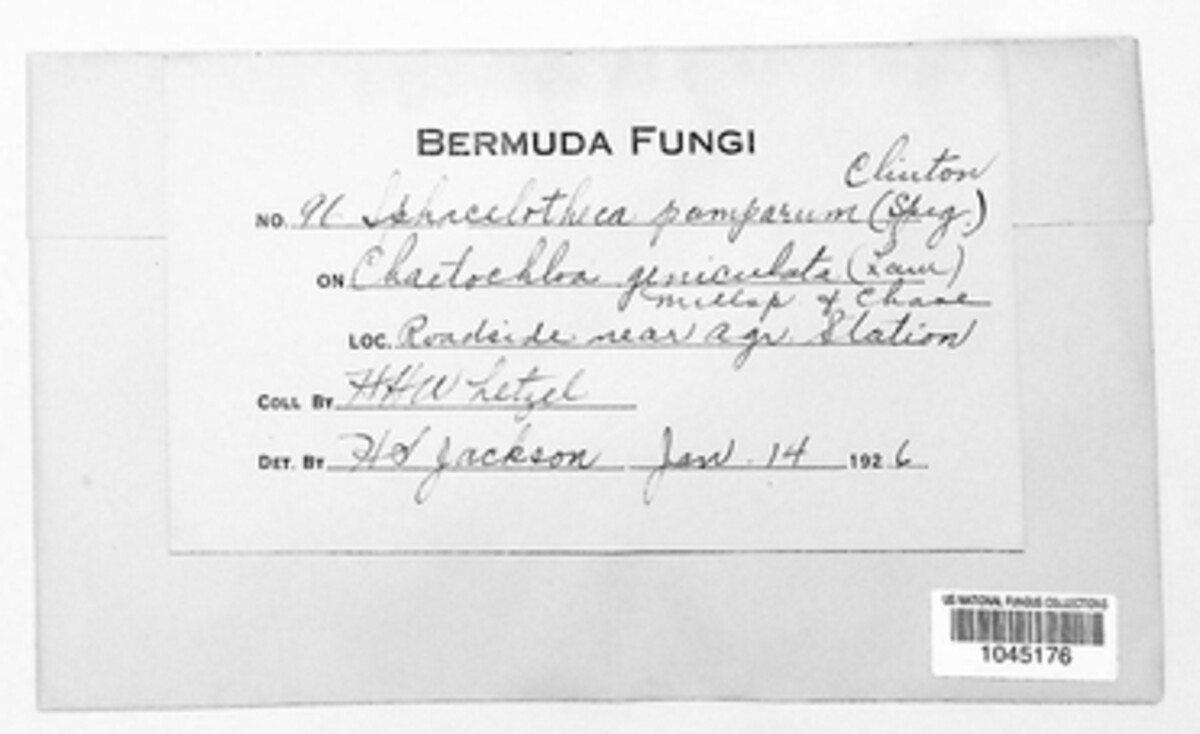 BERMUDA FUNGI
Clinton
NO. 91 Sphacelotheca pamparum (Speg.)
ON Chaetochloa geniculata (Lam)
Millsp & Chase
LOC. Roadside near Agr Station
COLL BY HH Whetzel
DET. BY HS Jackson Jan. 14 1926
US NATIONAL FUNGUS COLLECTIONS
1045176